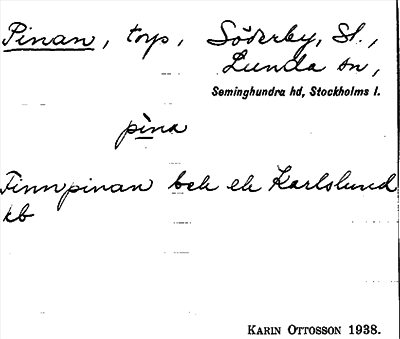 Pinan, torp, Söderby, St.,
Lunda sn,
Seminghundra hd, Stockholms l.
pina
Finnpinan bek ek Karlslund
kb
KARIN OTTOSSON 1938.